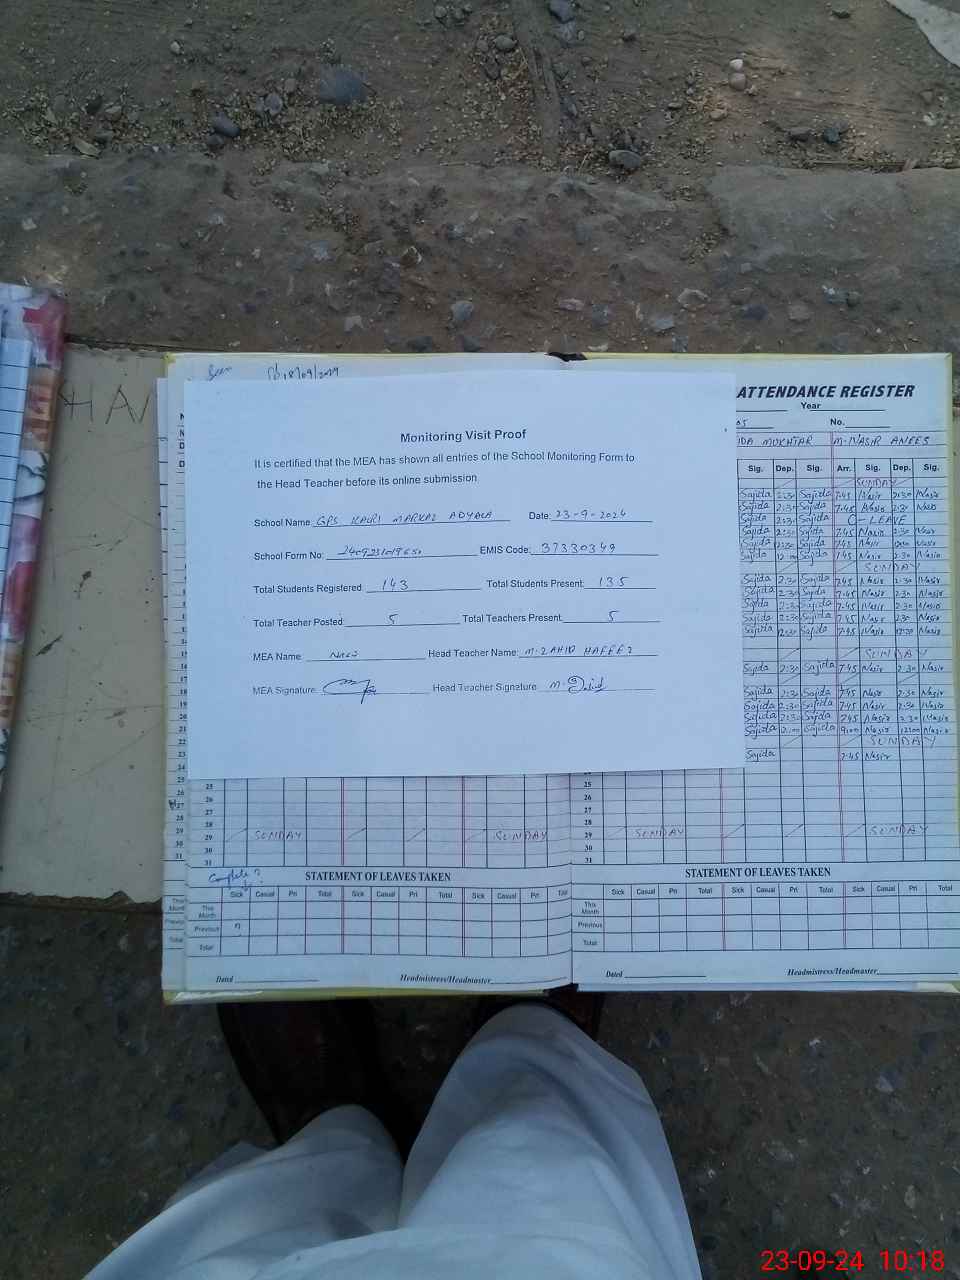 Seen 18/09/2024
ATTENDANCE REGISTER
Year
No.
IDA MUKHTAR M. NASIR ANEES
Monitoring Visit Proof
It is certified that the MEA has shown all entries of the School Monitoring Form to
the Head Teacher before its online submission
School Name: GPS KALRI MARKAZ ADYALA Date: 23-9-2024
School Form No: EMIS Code: 37330349
Total Students Registered: 143 Total Students Present: 135
Total Teacher Posted: 5 Total Teachers Present: 5
MEA Name: Head Teacher Name: M. ZAHID HAFEEZ
MEA Signature: Head Teacher Signature M. Zahid
Sig. Dep. Sig. Arr. Sig. Dep. Sig.
SUNDAY
Sajida 2:30 Sajida 7:45 Nasir 2:30 Nasir
Sajida 2:30 Sajida 7:45 Nasir 2:30 Nasir
Sajida 2:30 Sajida C-LEAVE
Sajida 2:30 Sajida 7:45 Nasir 2:30 Nasir
Sajida 2:30 Sajida 7:45 Nasir Nasir
Sajida 12:00 Sajida 7:45 Nasir 2:30 Nasir
SUNDAY
Sajida 2:30 Sajida 7:45 Nasir 2:30 Nasir
Sajida 2:30 Sajida 7:45 Nasir 2:30 Nasir
Sajida 2:30 Sajida 7:45 Nasir 2:30 Nasir
Sajida 2:30 Sajida 7:45 Nasir 2:30 Nasir
Sajida 12:30 Sajida 7:45 Nasir 12:30 Nasir
SUNDAY
Sajida 2:30 Sajida 7:45 Nasir 2:30 Nasir
Sajida 2:30 Sajida 7:45 Nasir 2:30 Nasir
Sajida 2:30 Sajida 7:45 Nasir 2:30 Nasir
Sajida 2:30 Sajida 7:45 Nasir 2:30 Nasir
Sajida 12:00 Sajida 9:00 Nasir 12:00 Nasir
SUNDAY
Sajida 7:45 Nasir
25 25
26 26
27 27
28 28
29 SUNDAY SUNDAY 29 SUNDAY SUNDAY
30 30
31 31
Complete ?
STATEMENT OF LEAVES TAKEN STATEMENT OF LEAVES TAKEN
Sick Casual Pri Total Sick Casual Pri Total Sick Casual Pri Total Sick Casual Pri Total Sick Casual Pri Total Sick Casual Pri Total
This Month This Month
Previous Previous
Total Total
Dated Headmistress/Headmaster Dated Headmistress/Headmaster
23-09-24 10:18